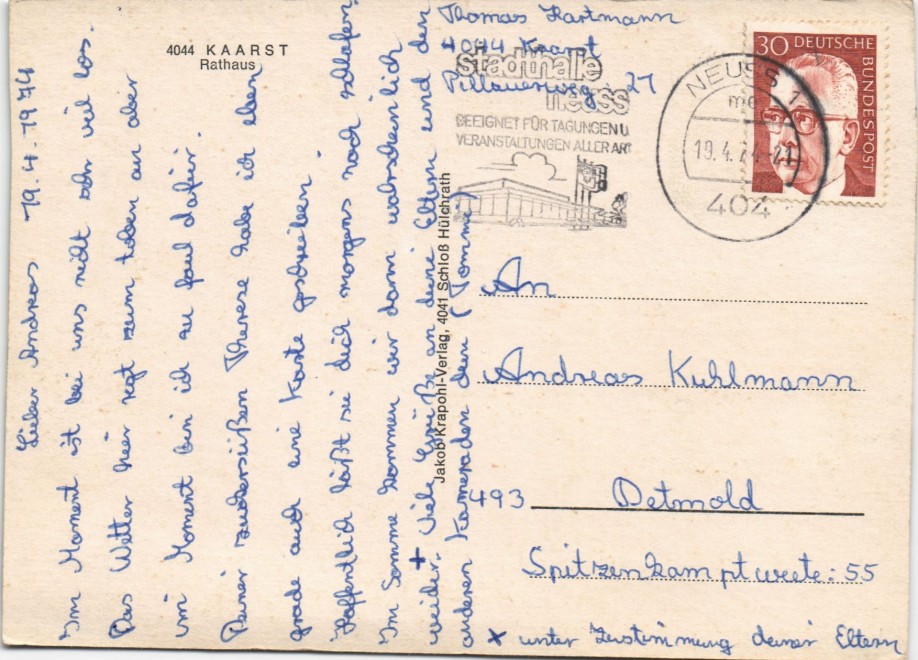 4044 KAARST
Rathaus
Lieber Andreas 19.4.1974
Im Moment ist bei uns nicht sehr viel los.
Das Wetter hier regt zum toben an aber
im Moment bin ich zu faul dafür.
Deiner zuckersüßen Therese habe ich eben
grade auch eine Karte geschrieben.
Hoffentlich läßt sie dich morgens noch schlafen
Im Somme kommen wir dann warscheinlich
weider. + Viele Grüße an deine Eltern und den
anderen Kameraden dein (Tommi)
x unter Zustimmung deiner Eltern
Jakob Krapohl-Verlag, 4041 Schloß Hülchrath
Thomas Hartmann
4044 Kaarst
Pillauerweg 27
stadthalle
neuss
GEEIGNET FÜR TAGUNGEN U.
VERANSTALTUNGEN ALLER ART
NEUSS 1
19.4.74-21
404
30 DEUTSCHE
BUNDESPOST
An
Andreas Kuhlmann
493 Detmold
Spitzenkamptwete: 55